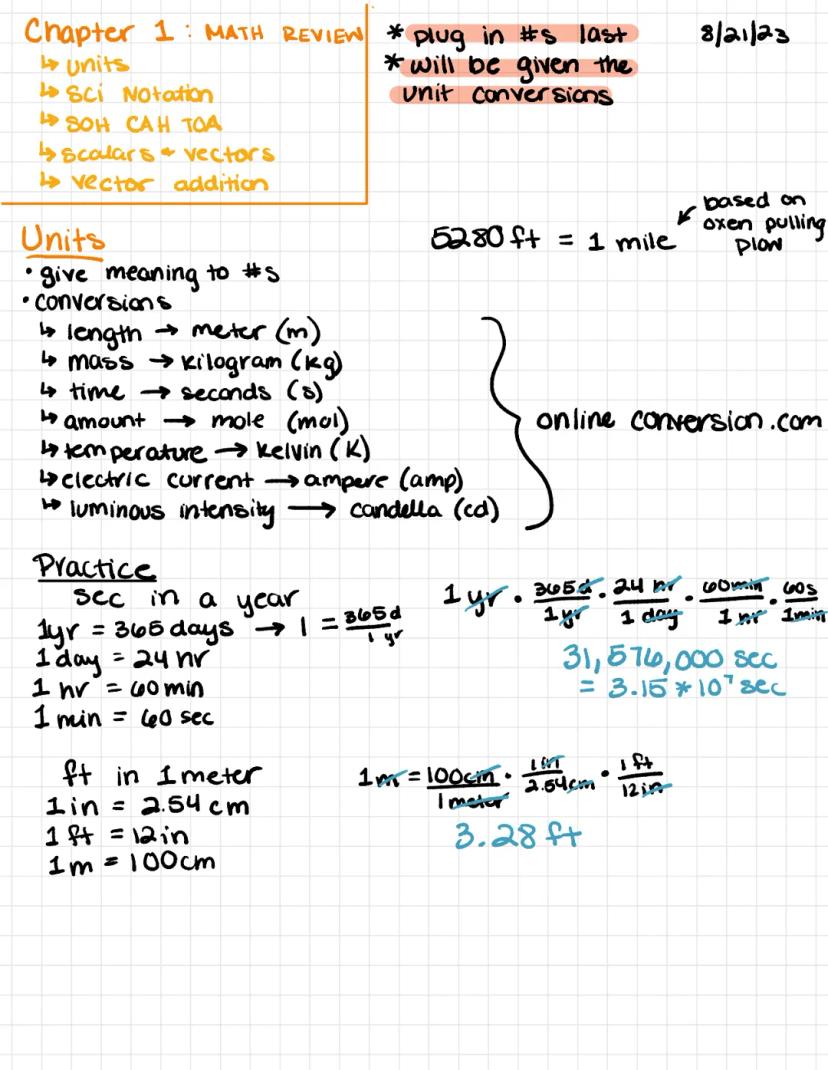 Chapter 1: MATH REVIEW
↳ units
↳ Sci Notation
↳ SOH CAH TOA
↳ scalars + vectors
↳ vector addition
* plug in #s last
* will be given the
unit conversions
8/21/23
Units
• give meaning to #s
• conversions
↳ length → meter (m)
↳ mass → kilogram (kg)
↳ time → seconds (s)
↳ amount → mole (mol)
↳ temperature → kelvin (K)
↳ electric current → ampere (amp)
↳ luminous intensity → candella (cd)
5280 ft = 1 mile
based on
oxen pulling
plow
online conversion.com
Practice
sec in a year
1yr = 365 days → 1 = 365d / 1 yr
1 day = 24 hr
1 hr = 60 min
1 min = 60 sec
1 yr • 365d / 1 yr • 24 hr / 1 day • 60min / 1 hr • 60s / 1min
31,576,000 sec
= 3.15 * 10⁷ sec
ft in 1 meter
1 in = 2.54 cm
1 ft = 12 in
1 m = 100cm
1m = 100cm / 1 meter • 1 in / 2.54cm • 1 ft / 12 in
3.28 ft